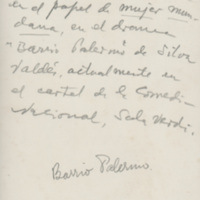 en el papel de mujer mun-
dana, en el drama
"Barrio Palermo de Silva
Valdés, actualmente en
el cartel de la Comedia
Nacional, Sala Verdi.
Barrio Palermo.